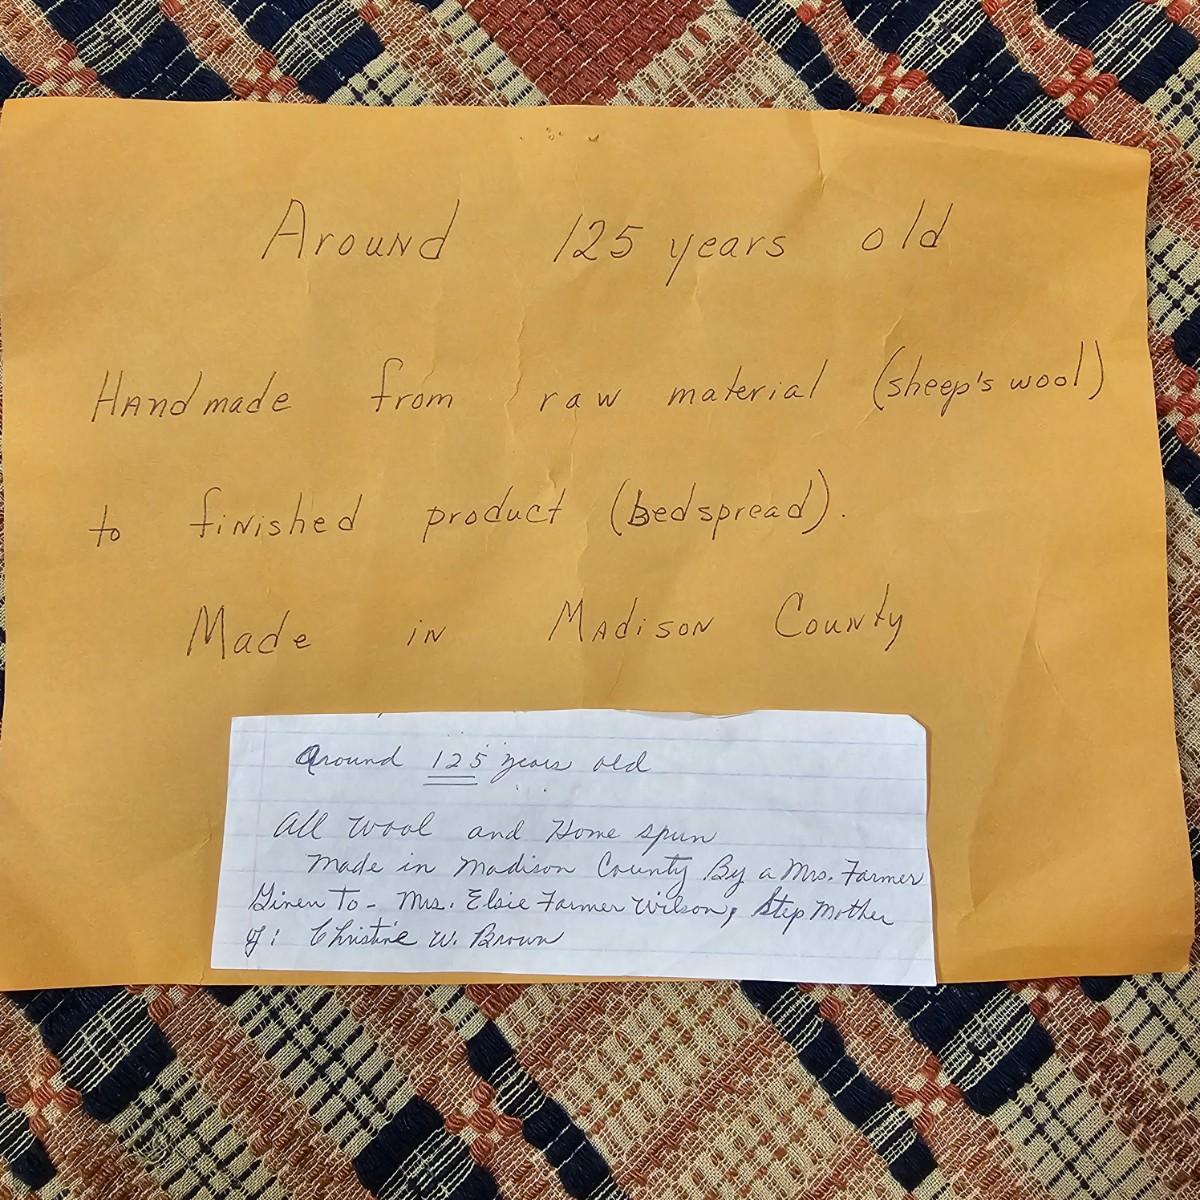 Around 125 years old
Handmade from raw material (sheep's wool)
to finished product (bedspread).
Made in Madison County
Around 125 years old
All Wool and Home spun
Made in Madison County By a Mrs. Farmer
Given To - Mrs. Elsie Farmer Wilson, Step Mother
of: Christine W. Brown